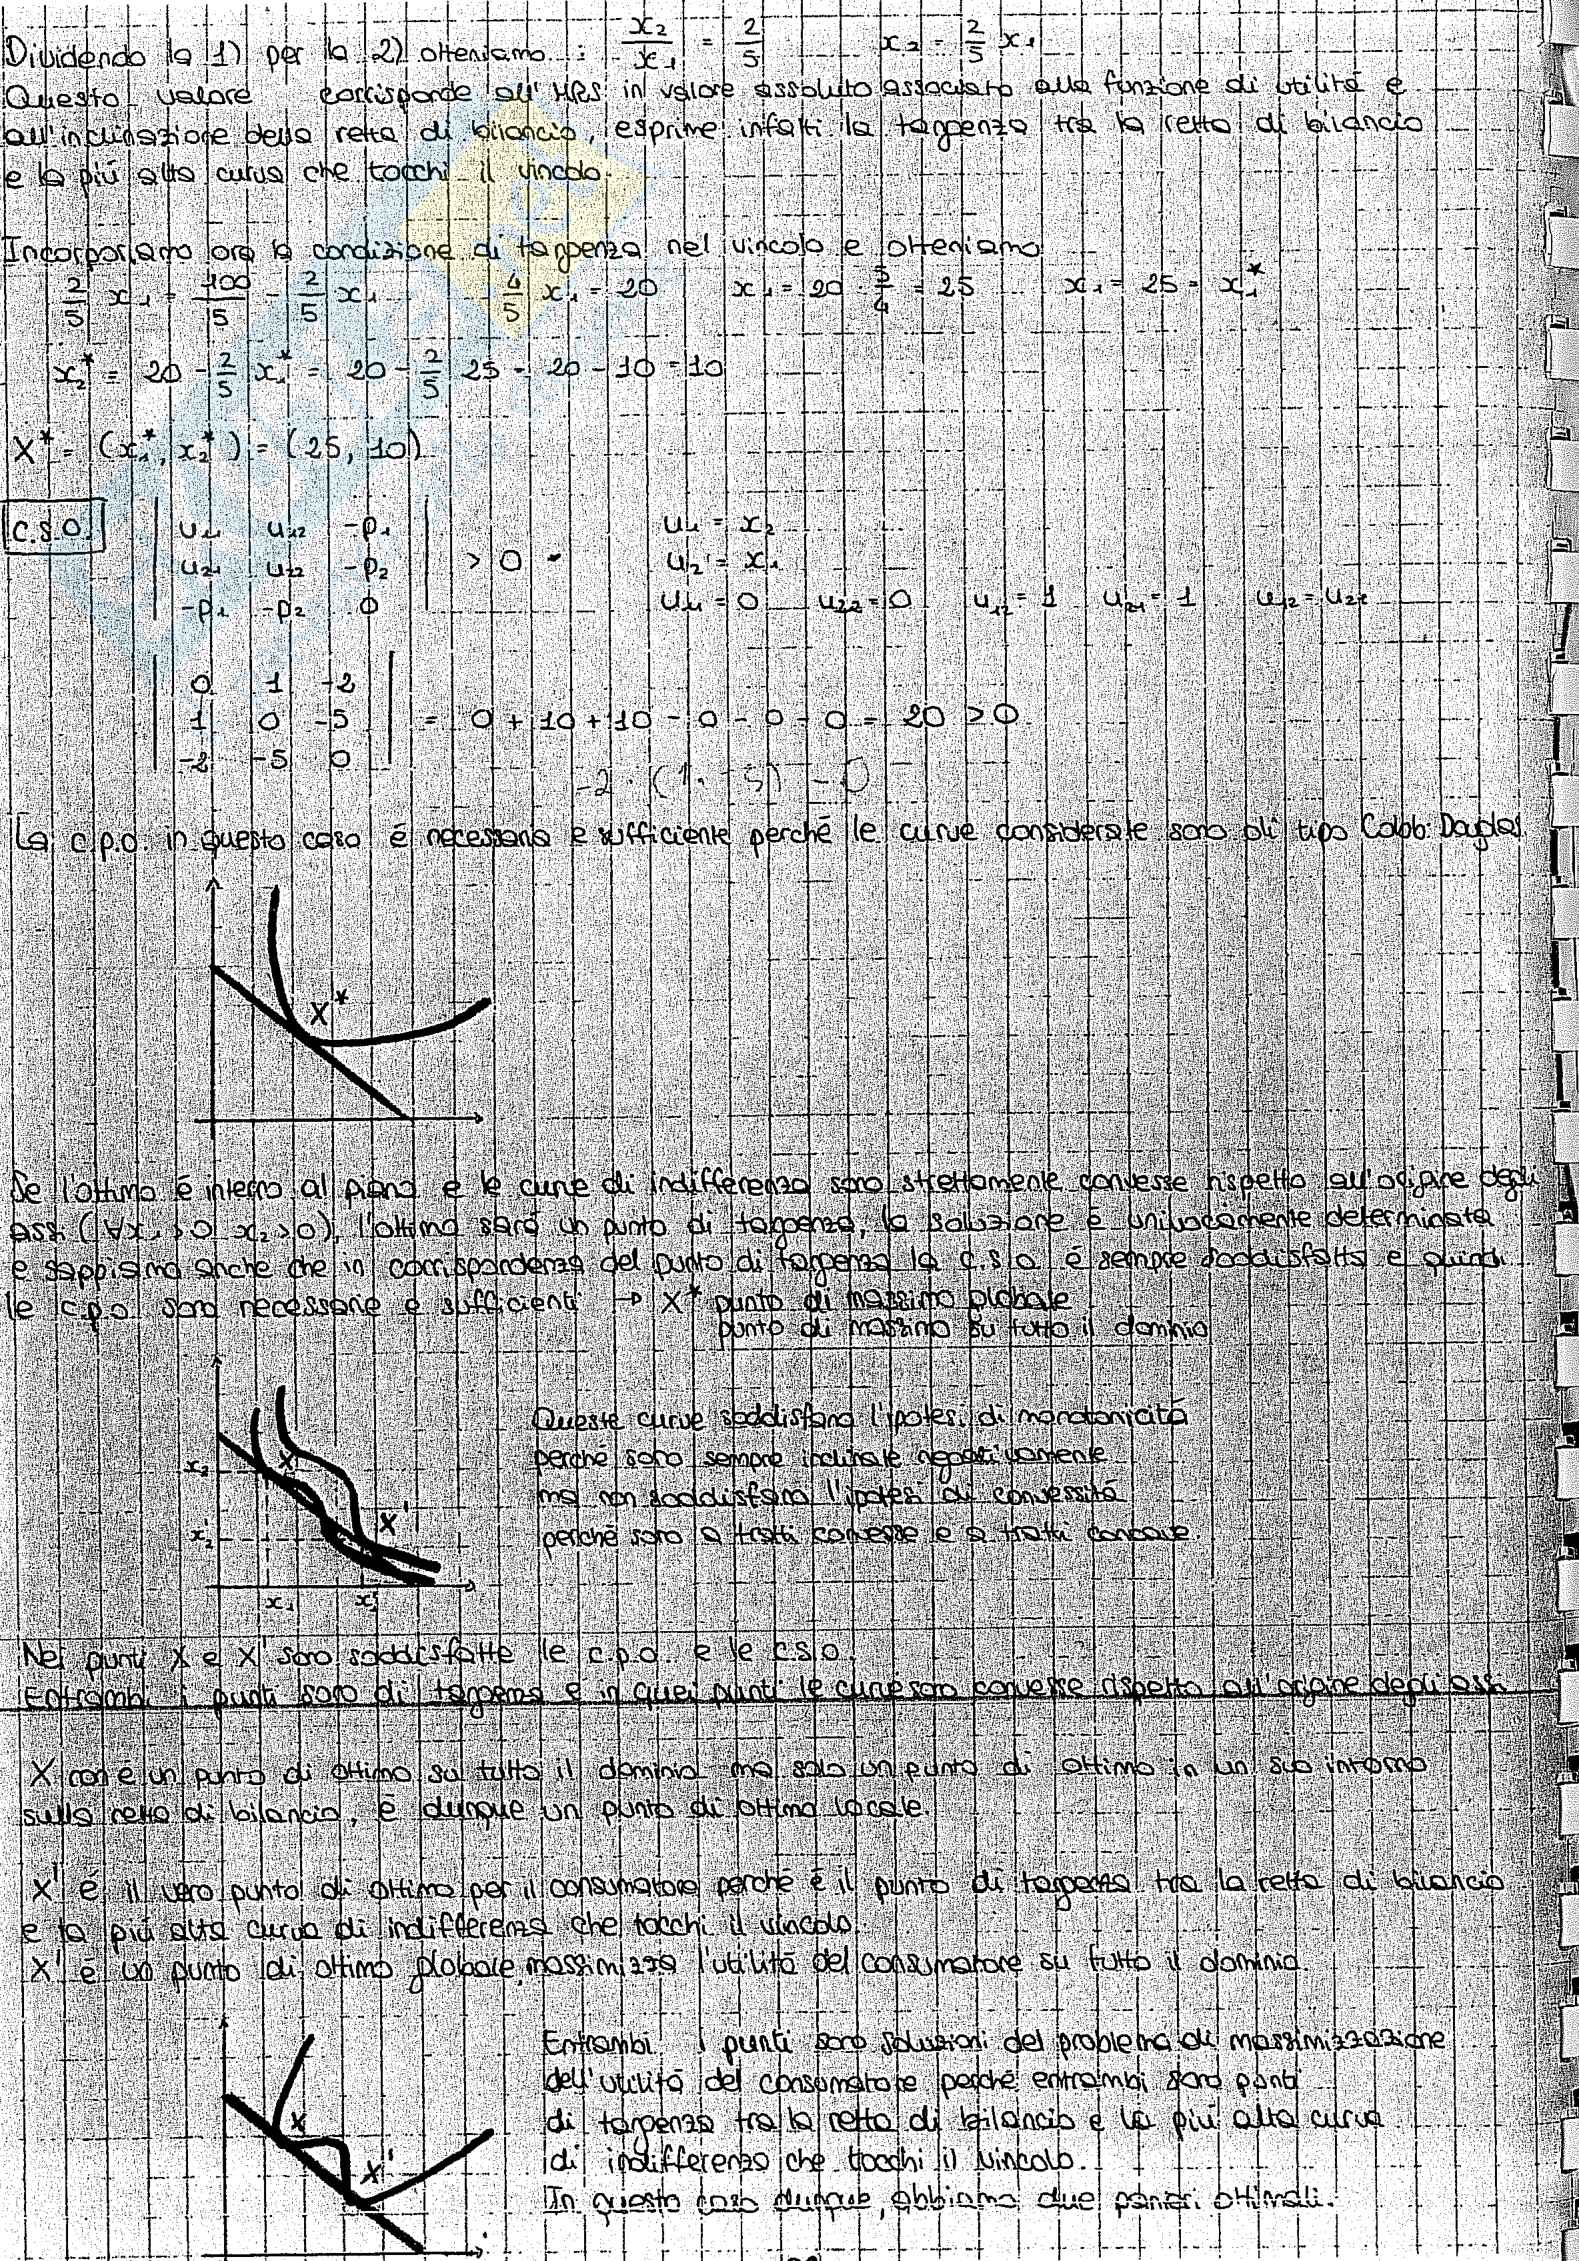 Dividendo la 1) per la 2) otteniamo : x₂/x₁ = 2/5 x₂ = 2/5 x₁
Questo valore corrisponde all'MRS in valore assoluto associato alla funzione di utilità e
all'inclinazione della retta di bilancio, esprime infatti la tangenza tra la retta di bilancio
e la più alta curva che tocchi il vincolo.
Incorporiamo ora la condizione di tangenza nel vincolo e otteniamo
2/5 x₁ = 100/5 - 2/5 x₁ 4/5 x₁ = 20 x₁ = 20 · 5/4 = 25 x₁ = 25 = x₁*
x₂* = 20 - 2/5 x₁* = 20 - 2/5 25 = 20 - 10 = 10
X* = (x₁*, x₂*) = (25, 10)
C.S.O. | u₁₁ u₁₂ -p₁ | u₁ = x₂
| u₂₁ u₂₂ -p₂ | > 0 u₂ = x₁
| -p₁ -p₂ 0 | u₁₁ = 0 u₂₂ = 0 u₁₂ = 1 u₂₁ = 1 u₁₂ = u₂₁
| 0 1 -2 |
| 1 0 -5 | = 0 + 10 + 10 - 0 - 0 - 0 = 20 > 0
| -2 -5 0 |
-2 · (1 · -5) - 0
La c.p.o. in questo caso è necessaria e sufficiente perché le curve considerate sono di tipo Cobb-Douglas.
X*
Se l'ottimo è interno al piano e le curve di indifferenza sono strettamente convesse rispetto all'origine degli
assi (∀x₁>0 x₂>0), l'ottimo sarà un punto di tangenza, la soluzione è univocamente determinata
e sappiamo anche che in corrispondenza del punto di tangenza la c.s.o. è sempre soddisfatta e quindi
le c.p.o. sono necessarie e sufficienti → X* punto di massimo globale
punto di massimo su tutto il dominio
Queste curve soddisfano l'ipotesi di monotonicità
perché sono sempre inclinate negativamente
ma non soddisfano l'ipotesi di convessità
perché sono a tratti convesse e a tratti concave.
x₂ X
x₂' X'
x₁ x₁'
Nei punti X e X' sono soddisfatte le c.p.o. e le c.s.o.
Entrambi i punti sono di tangenza e in quei punti le curve sono convesse rispetto all'origine degli assi.
X non è un punto di ottimo su tutto il dominio ma solo un punto di ottimo in un suo intorno
sulla retta di bilancio, è dunque un punto di ottimo locale.
X' è il vero punto di ottimo per il consumatore perché è il punto di tangenza tra la retta di bilancio
e la più alta curva di indifferenza che tocchi il vincolo.
X' è un punto di ottimo globale, massimizza l'utilità del consumatore su tutto il dominio.
Entrambi i punti sono soluzioni del problema di massimizzazione
dell'utilità del consumatore perché entrambi sono punti
di tangenza tra la retta di bilancio e la più alta curva
di indifferenza che tocchi il vincolo.
In questo caso dunque, abbiamo due panieri ottimali.
X
X'